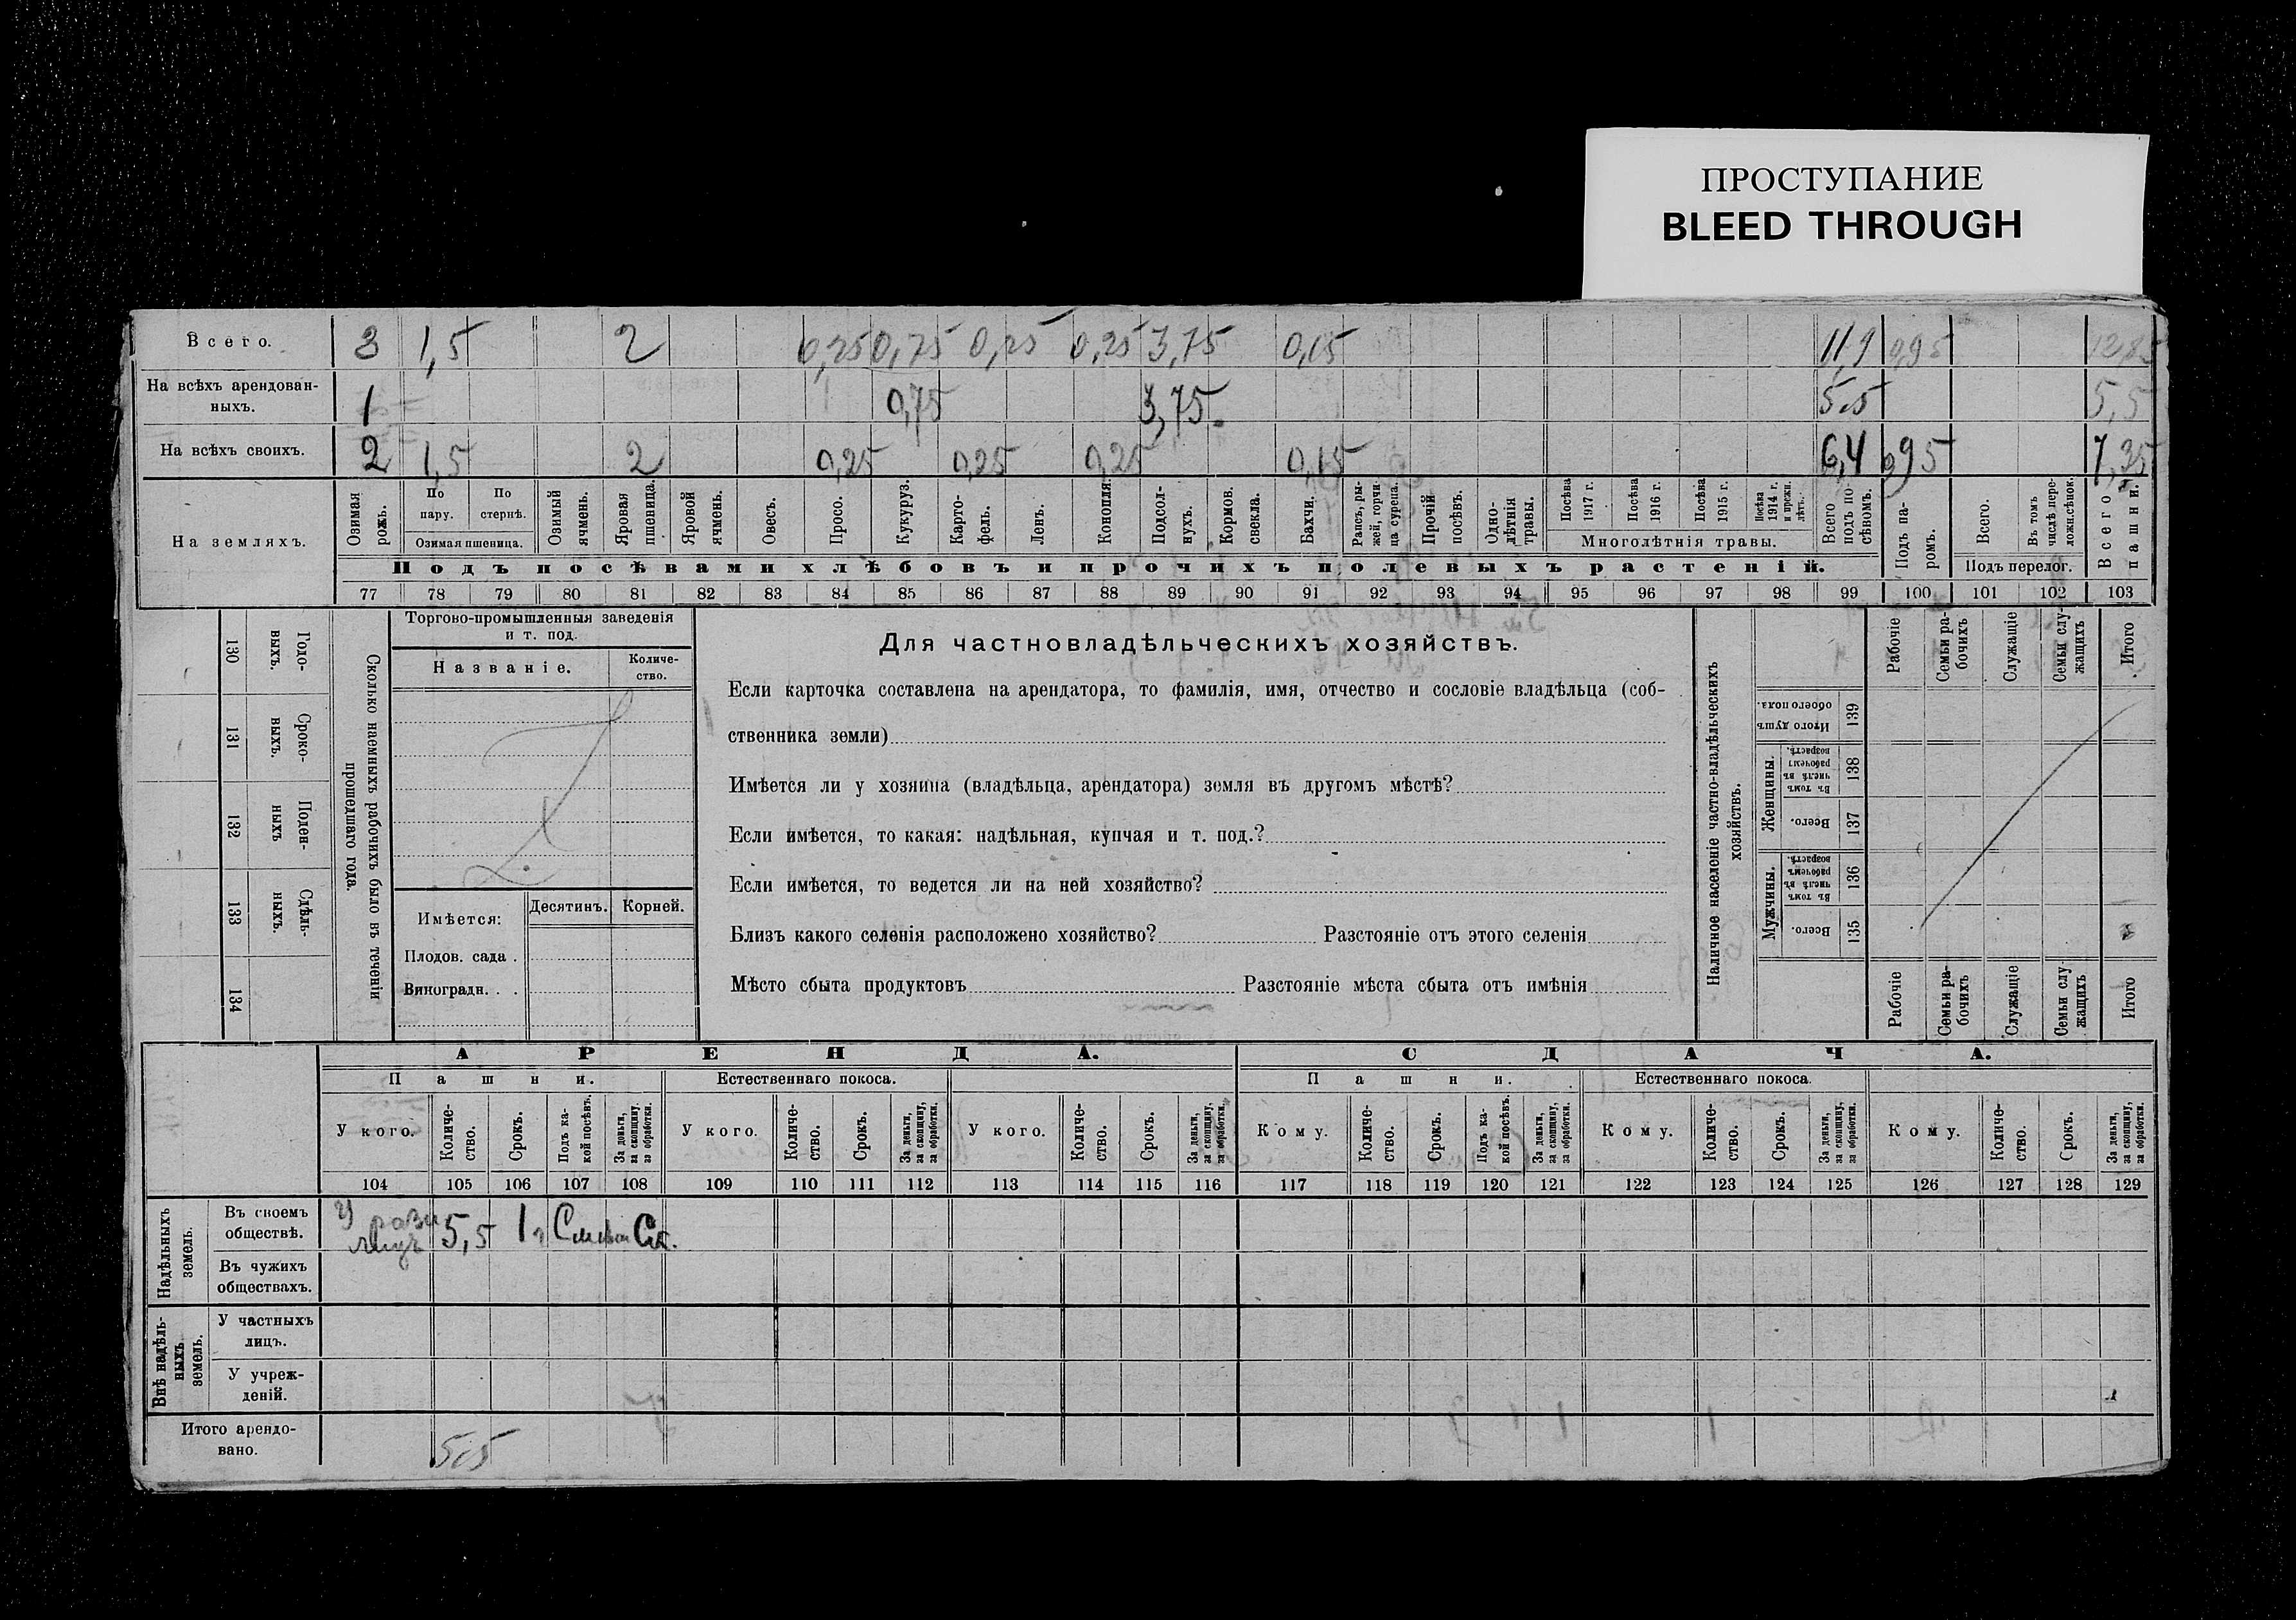 ПРОСТУПАНИЕ
BLEED THROUGH
Всего. 3 1,5 2 0,25 0,75 0,25 0,25 3,75 0,15 11,9 0,95 12,85
На всѣхъ арендован-
ныхъ. 1 0,75 3,75 5,5 5,5
На всѣхъ своихъ. 2 1,5 2 0,25 0,25 0,25 0,15 6,4 0,95 7,35
На земляхъ.
Озимая рожь.
По пару.
По стернѣ.
Озимая пшеница.
Озимый ячмень.
Яровая пшеница.
Яровой ячмень.
Овесъ.
Просо.
Кукуруз.
Карто-
фель.
Ленъ.
Конопля.
Подсол-
нухъ.
Кормов.
свекла.
Бахчи.
Рапсъ, ры-
жей, горчи-
ца сурепа.
Прочій
посѣвъ.
Одно-
лѣтнія
травы.
Посѣва 1917 г.
Посѣва 1916 г.
Посѣва 1915 г.
Посѣва 1914 г. и прежн. лѣтъ.
Многолѣтнія травы.
Всего подъ по-
сѣвомъ.
Подъ па-
ромъ.
Всего.
Въ томъ числѣ пере-
ложн. сѣнок.
Подъ перелог.
Всего пашни.
Подъ посѣвами хлѣбовъ и прочихъ полевыхъ растеній.
77 78 79 80 81 82 83 84 85 86 87 88 89 90 91 92 93 94 95 96 97 98 99 100 101 102 103
130 Годо-
выхъ.
131 Сроко-
выхъ.
132 Поден-
ныхъ
133 Сдѣль-
ныхъ.
134
Сколько наемныхъ рабочихъ было въ теченіи
прошедшаго года.
Торгово-промышленныя заведенія
и т. под.
Названіе.
Количе-
ство.
Имѣется: Десятинъ. Корней.
Плодов. сада .
Виноградн. . .
Для частновладѣльческихъ хозяйствъ.
Если карточка составлена на арендатора, то фамилія, имя, отчество и сословіе владѣльца (соб-
ственника земли)
Имѣется ли у хозяина (владѣльца, арендатора) земля въ другомъ мѣстѣ?
Если имѣется, то какая: надѣльная, купчая и т. под.?
Если имѣется, то ведется ли на ней хозяйство?
Близъ какого селенія расположено хозяйство? Разстояніе отъ этого селенія
Мѣсто сбыта продуктовъ Разстояніе мѣста сбыта отъ имѣнія
Наличное населеніе частно-владѣльческихъ
хозяйствъ.
Рабочіе
Семьи ра-
бочихъ
Служащіе
Семьи слу-
жащихъ
Итого
Итого душъ обоего пола. 139
Женщины.
Въ томъ числѣ въ рабочемъ возрастѣ. 138
Всего. 137
Мужчины.
Въ томъ числѣ въ рабочемъ возрастѣ. 136
Всего. 135
Рабочіе
Семьи ра-
бочихъ
Служащіе
Семьи слу
жащихъ
Итого
АРЕНДА. СДАЧА.
Пашни. Естественнаго покоса. Пашни. Естественнаго покоса.
У кого.
Количе-
ство.
Срокъ.
Подъ ка-
кой посѣвъ.
За деньги,
за скопщину,
за обработки.
У кого.
Количе-
ство.
Срокъ.
За деньги,
за скопщину,
за обработки.
У кого.
Количе-
ство.
Срокъ.
За деньги,
за скопщину,
за обработки.
Кому.
Количе-
ство.
Срокъ.
Подъ ка-
кой посѣвъ.
За деньги,
за скопщину,
за обработки.
Кому.
Количе-
ство.
Срокъ.
За деньги,
за скопщину,
за обработки.
Кому.
Количе-
ство.
Срокъ.
За деньги,
за скопщину,
за обработки.
104 105 106 107 108 109 110 111 112 113 114 115 116 117 118 119 120 121 122 123 124 125 126 127 128 129
Надѣльныхъ
земель.
Въ своемъ
обществѣ. У разн лицъ 5,5 1 г Ск.
Въ чужихъ
обществахъ.
Внѣ надѣль-
ныхъ
земель.
У частныхъ
лицъ.
У учреж-
деній.
Итого арендо-
вано. 5,5